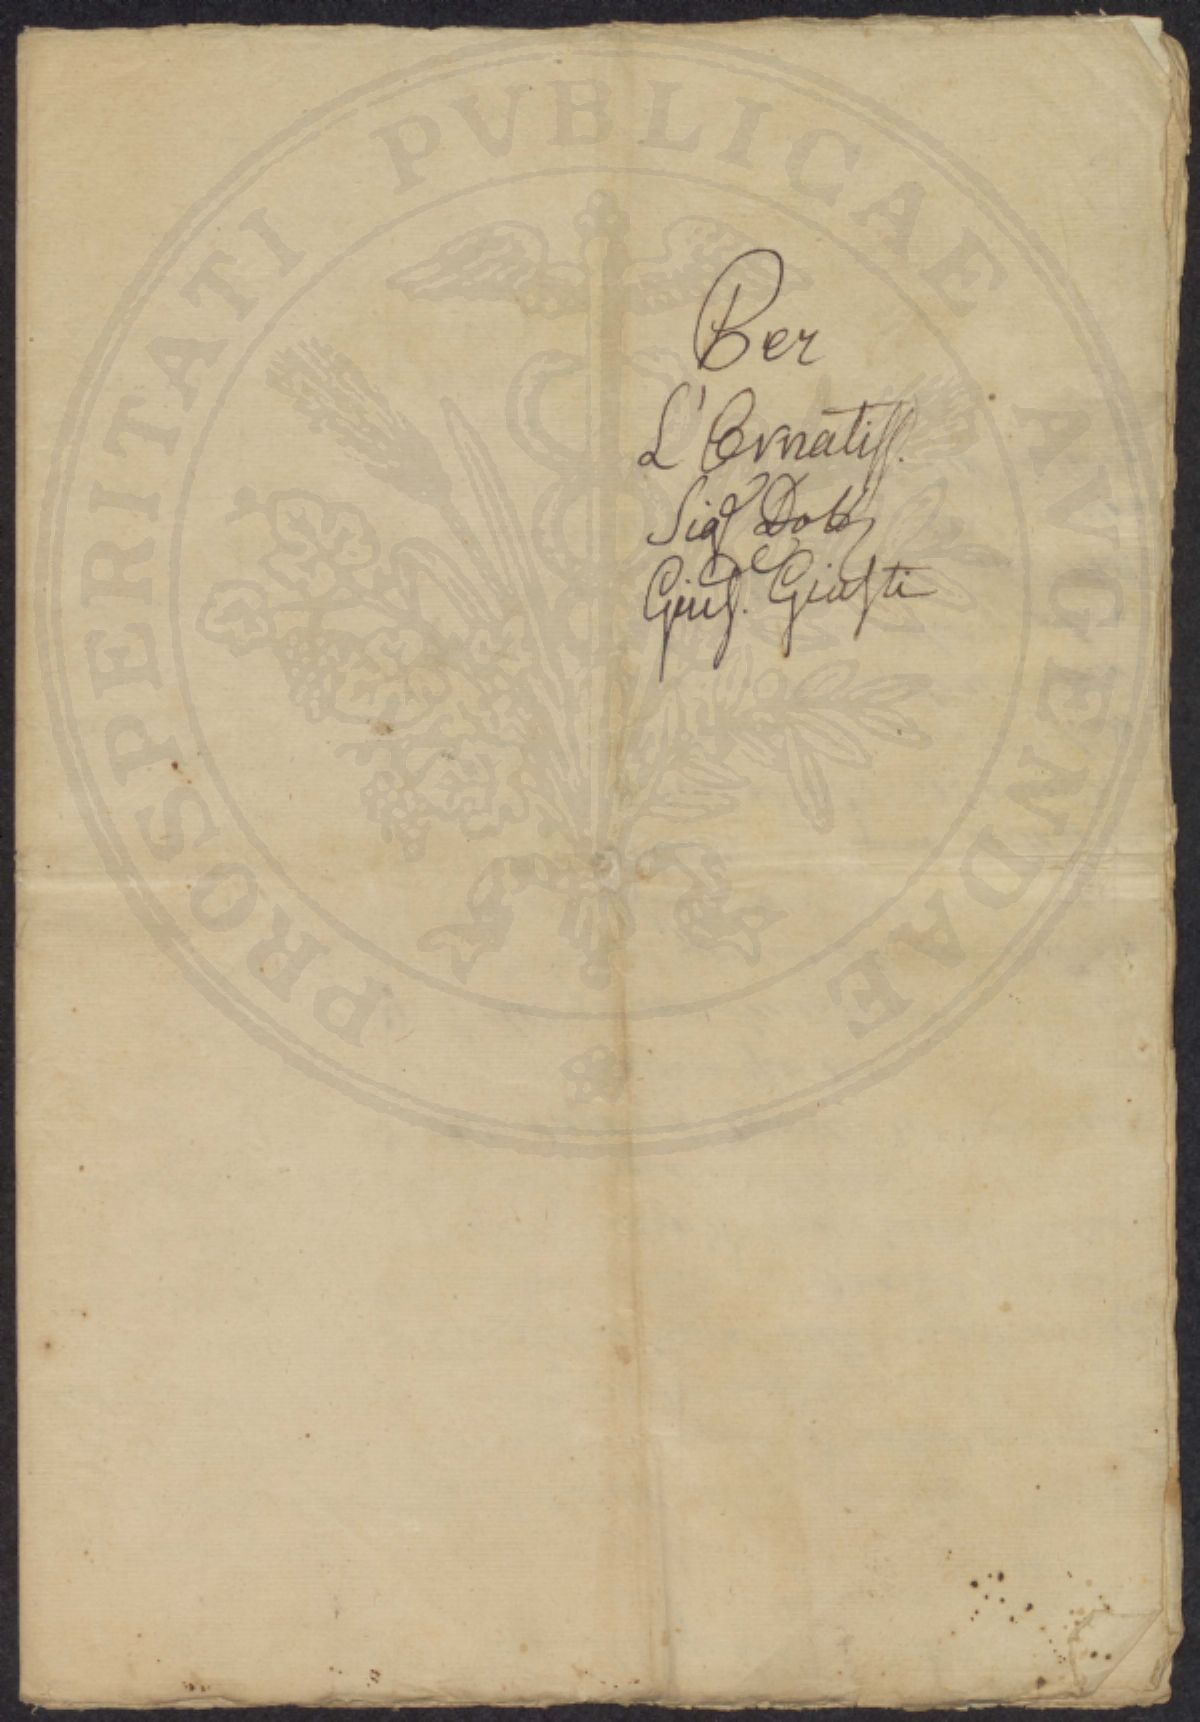 PROSPERITATI PUBLICAE AUGENDAE
Per
L'Ornatiss.
Sigr Dottr
Gius. Giusti